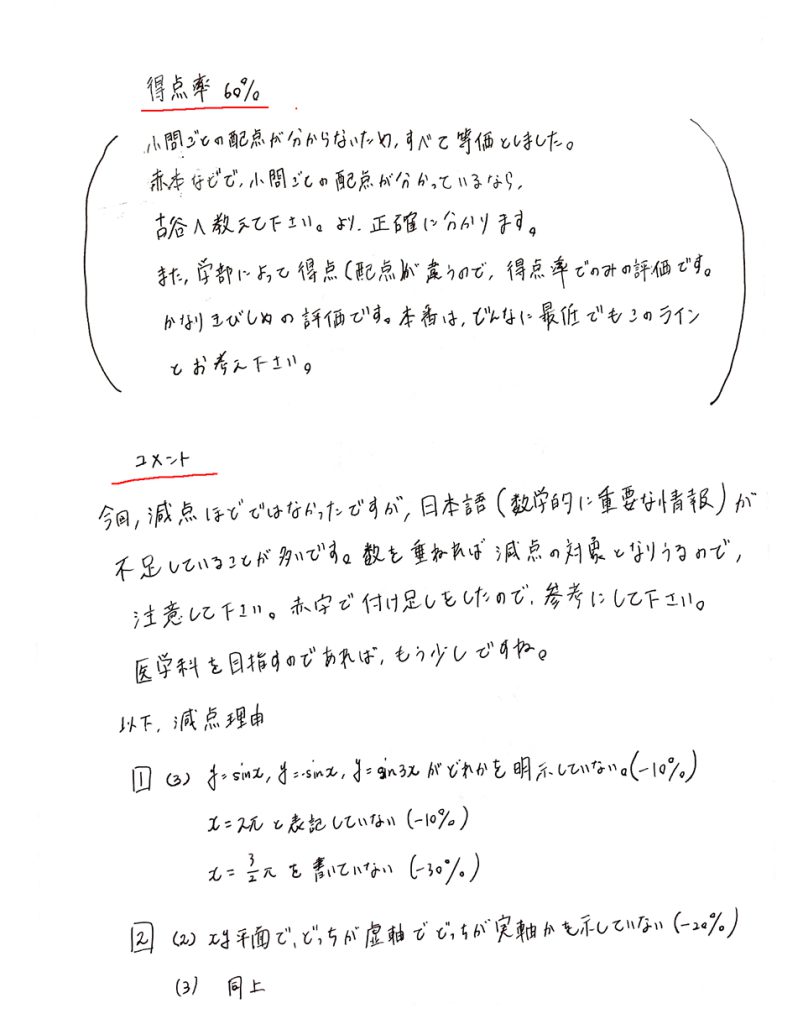 得点率 60%
小問ごとの配点が分からないため,すべて等価としました。
赤本などで,小問ごとの配点が分かっているなら,
古谷へ教えて下さい。より,正確に分かります。
また,学部によって得点(配点)が違うので,得点率でのみの評価です。
かなりきびしめの評価です。本番は,どんなに最低でもこのライン
とお考え下さい。
コメント
今回,減点ほどではなかったですが,日本語(数学的に重要な情報)が
不足していることが多いです。数を重ねれば減点の対象となりうるので,
注意して下さい。赤字で付け足しをしたので,参考にして下さい。
医学科を目指すのであれば,もう少しですね。
以下,減点理由
1 (3) y=sinx, y=-sinx, y=sin3xがどれかを明示していない。(-10%)
x=2π と表記していない (-10%)
x=3/2π を書いていない (-30%)
2 (2) xy平面で,どっちが虚軸でどっちが実軸かを示していない (-20%)
(3) 同上